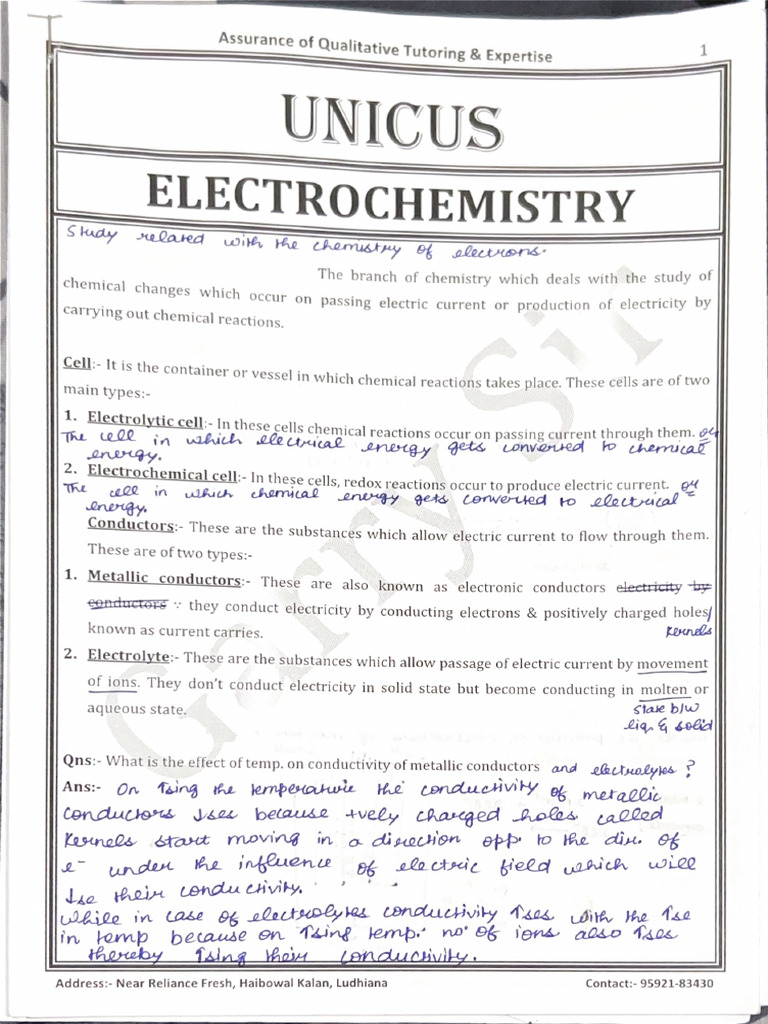 Assurance of Qualitative Tutoring & Expertise 1
UNICUS
ELECTROCHEMISTRY
Study related with the chemistry of electrons.
The branch of chemistry which deals with the study of
chemical changes which occur on passing electric current or production of electricity by
carrying out chemical reactions.
Cell:- It is the container or vessel in which chemical reactions takes place. These cells are of two
main types:-
1. Electrolytic cell:- In these cells chemical reactions occur on passing current through them. or
The cell in which electrical energy gets converted to chemical
energy.
2. Electrochemical cell:- In these cells, redox reactions occur to produce electric current. or
The cell in which chemical energy gets converted to electrical
energy.
Conductors:- These are the substances which allow electric current to flow through them.
These are of two types:-
1. Metallic conductors:- These are also known as electronic conductors electricity by
conductors ∵ they conduct electricity by conducting electrons & positively charged holes/
known as current carries. Kernels
2. Electrolyte:- These are the substances which allow passage of electric current by movement
of ions. They don't conduct electricity in solid state but become conducting in molten or
aqueous state. state b/w
liq. & solid
Qns:- What is the effect of temp. on conductivity of metallic conductors and electrolytes?
Ans:- On ↑sing the temperature the conductivity of metallic
conductors ↓ses because +vely charged holes called
Kernels start moving in a direction opp. to the dir. of
e⁻ under the influence of electric field which will
↓se their conductivity.
while in case of electrolytes conductivity ↑ses with the ↑se
in temp because on ↑sing temp. no. of ions also ↑ses
thereby ↑sing their conductivity.
Garry Sir
Address:- Near Reliance Fresh, Haibowal Kalan, Ludhiana Contact:- 95921-83430